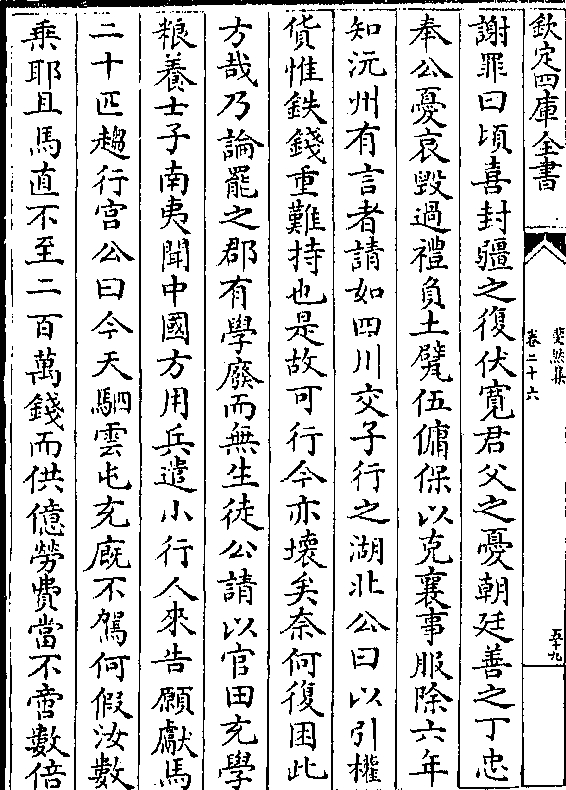 欽定四庫全書
斐然集
卷二十六
五十九
謝罪曰頃喜封疆之復伏寬君父之憂朝廷善之丁忠
奉公憂哀毀過禮負土甓伍傭保以克襄事服除六年
知沅州有言者請如四川交子行之湖北公曰以引權
貨惟鉄錢重難持也是故可行今亦壞矣奈何復困此
方哉乃論罷之郡有學廢而無生徒公請以官田充學
粮養士子南夷聞中國方用兵遣小行人來告願獻馬
二十匹趨行宫公曰今天駟雲屯充廐不駕何假汝數
乘耶且馬直不至二百萬錢而供億勞費當不啻數倍